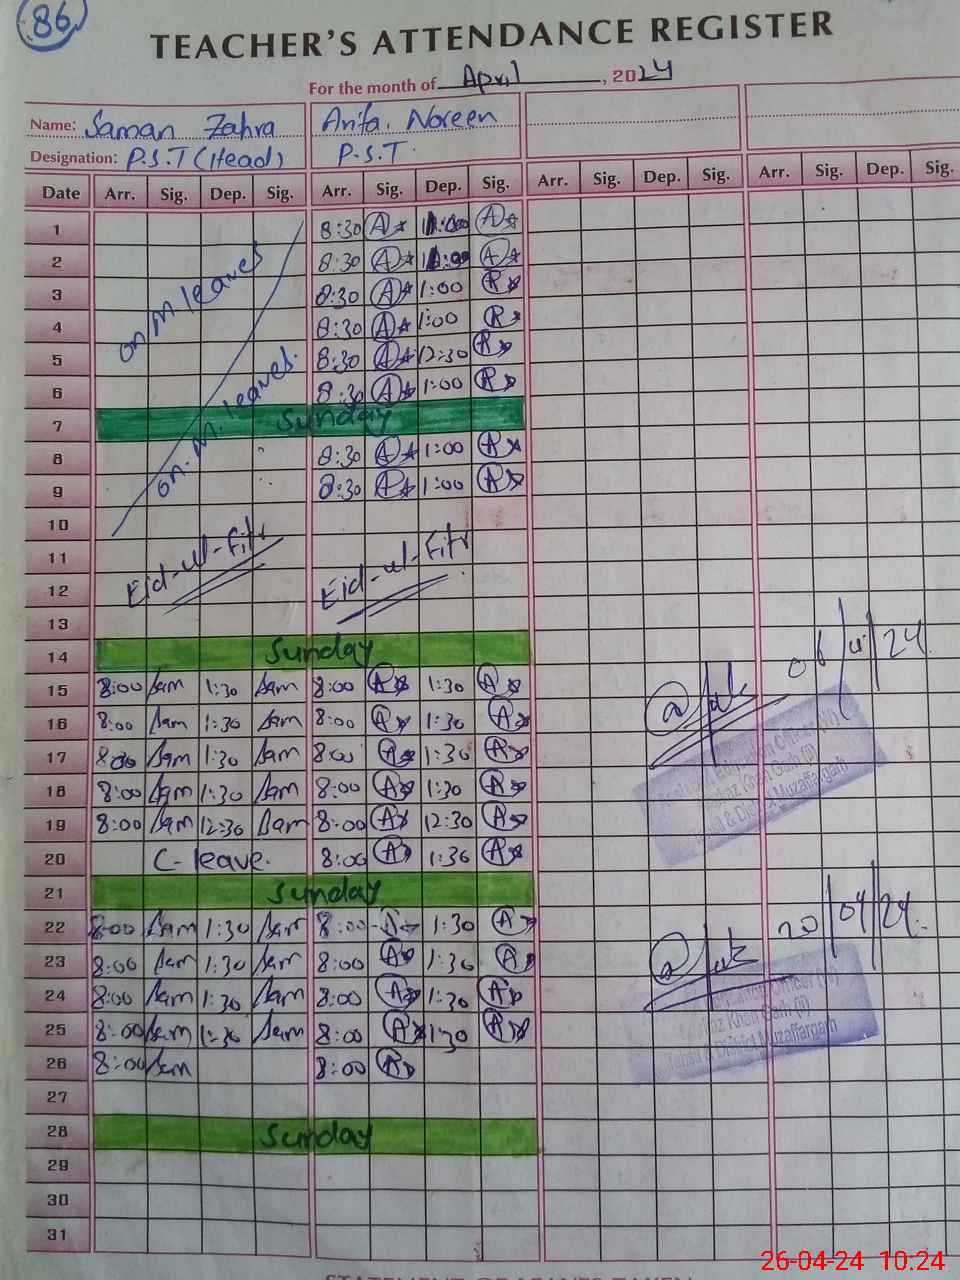 86
TEACHER'S ATTENDANCE REGISTER
For the month of April, 2024
Name: Saman Zahra Anifa. Noreen
Designation: P.S.T (Head) P.S.T.
Date Arr. Sig. Dep. Sig. Arr. Sig. Dep. Sig. Arr. Sig. Dep. Sig. Arr. Sig. Dep. Sig.
1 8:30 A A
2 8:30 A A
3 8:30 A 1:00
on M leaves
4 8:30 A 1:00
5 8:30 A 12:30
6 8:30 A 1:00
on. M. leaves.
7 Sunday
8 8:30 A 1:00 A
9 8:30 A 1:00 A
10
11 Eid-ul-Fitr Eid-ul-Fitr
12
13
14 Sunday
15 8:00 Sam 1:30 Sam 8:00 A 1:30 A
06/4/24
16 8:00 Sam 1:30 Sam 8:00 A 1:30 A
17 8:00 Sam 1:30 Sam 8:00 A 1:30 A
18 8:00 Sam 1:30 Sam 8:00 A 1:30 A
19 8:00 Sam 12:30 Sam 8:00 A 12:30 A
Assistant Education Officer (W)
Khan Garh (II)
Tehsil & District Muzaffargarh
20 C-leave. 8:00 A 1:30 A
21 Sunday
22 8:00 Sam 1:30 Sam 8:00 A 1:30 A
20/04/24.
23 8:00 Sam 1:30 Sam 8:00 A 1:30 A
24 8:00 Sam 1:30 Sam 8:00 A 1:30 A
25 8:00 Sam 1:30 Sam 8:00 A 1:30 A
Education Officer (W)
Khan Garh (II)
Tehsil & District Muzaffargarh
26 8:00 Sam 8:00 A
27
28 Sunday
29
30
31
26-04-24 10:24